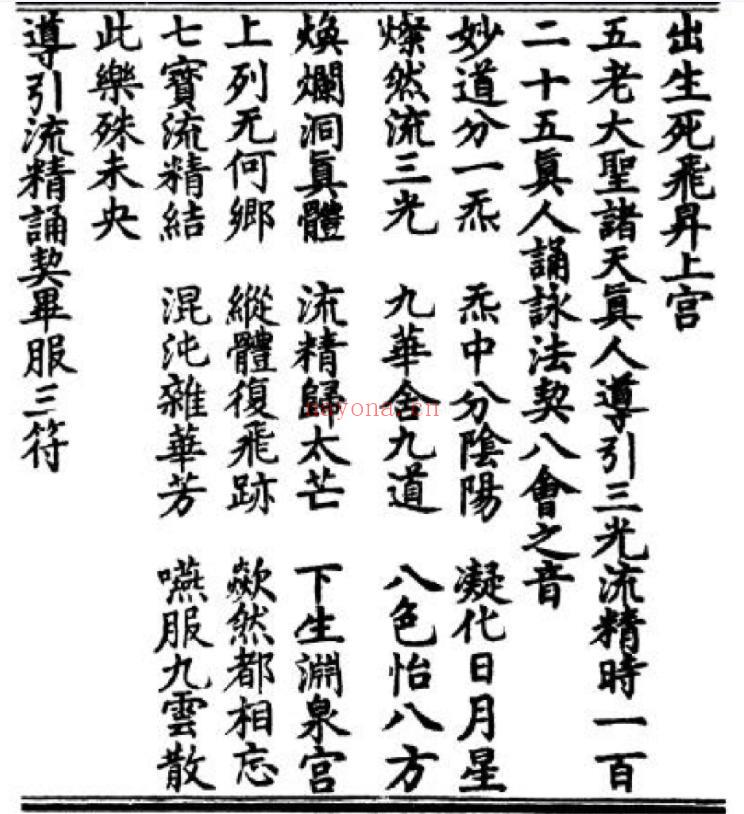 出生死飛昇上宫
五老大聖諸天眞人導引三光流精時一百
二十五眞人誦詠法契八會之音
妙道分一炁　炁中分陰陽　凝化日月星
燦然流三光　九華舍九道　八色怡八方
煥爛洞眞體　流精歸太芒　下生淵泉宫
上列无何鄉　縱體復飛跡　歘然都相忘
七寳流精結　混沌雜華芳　嚥服九雲散
此樂殊未央
導引流精誦契畢服三符
nayona.cn